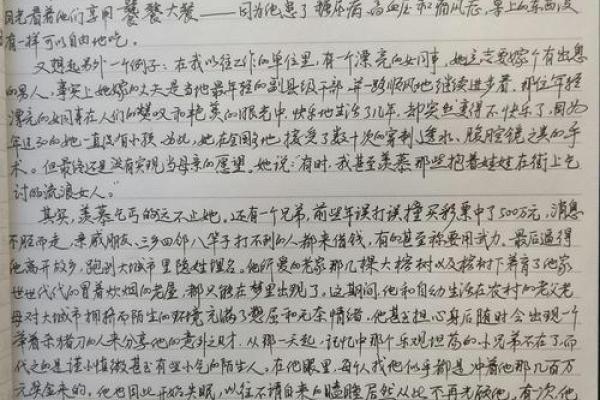 目光看着他们享用饕餮大餐——因为他患了糖尿病、高血压和痛风症,桌上的东西没
有一样可以自由地吃。
又想起另外一个例子:在我以往工作的单位里,有一个漂亮的女同事,她立志要嫁个有出息
的男人,事实上她嫁的丈夫是当地最年轻的副县级干部,并一路顺风地继续进步着。那位年轻
漂亮的女同事在人们的赞叹和艳羡的眼光中,快乐地生活了几年,却突然变得不快乐了。因为
年过30的她一直没有小孩。为此,她在全国各地接受了数十次的穿刺、透水、腹腔镜之类的手
术。但最终还是没有实现当母亲的愿望。她说:“有时,我甚至羡慕那些抱着娃娃在街上乞
讨的流浪女人。”
其实,羡慕乞丐的远不止她。还有一个兄弟,前些年误打误撞买彩票中了500万元,消息
不胫而走,亲戚朋友、三乡四邻八竿子打不到的人都来借钱,有的甚至称要用武力。最后逼得
他离开故乡,跑到大城市里隐姓埋名。他所爱的老家那几棵大榕树以及榕树下养育了他家
世世代代的冒着炊烟的老屋,都只能在梦里出现了。这期间,他和自幼生活在农村的老父老
母对大城市拥挤而陌生的环境充满了憋屈和无奈情绪。他甚至担心身后随时会出现一个
拿着杀猪刀的人来分享他的意外之财。从那一天起,记忆中那个乐观坦荡的小兄弟不在了,而
代之的是谨小慎微甚至有些小气的陌生人。在他眼里,每个人找他似乎都是冲着他那几百万
元奖金来的。他也因此开始失眠,以往不请自来的瞌睡居然从此不再光顾他。有一次,他